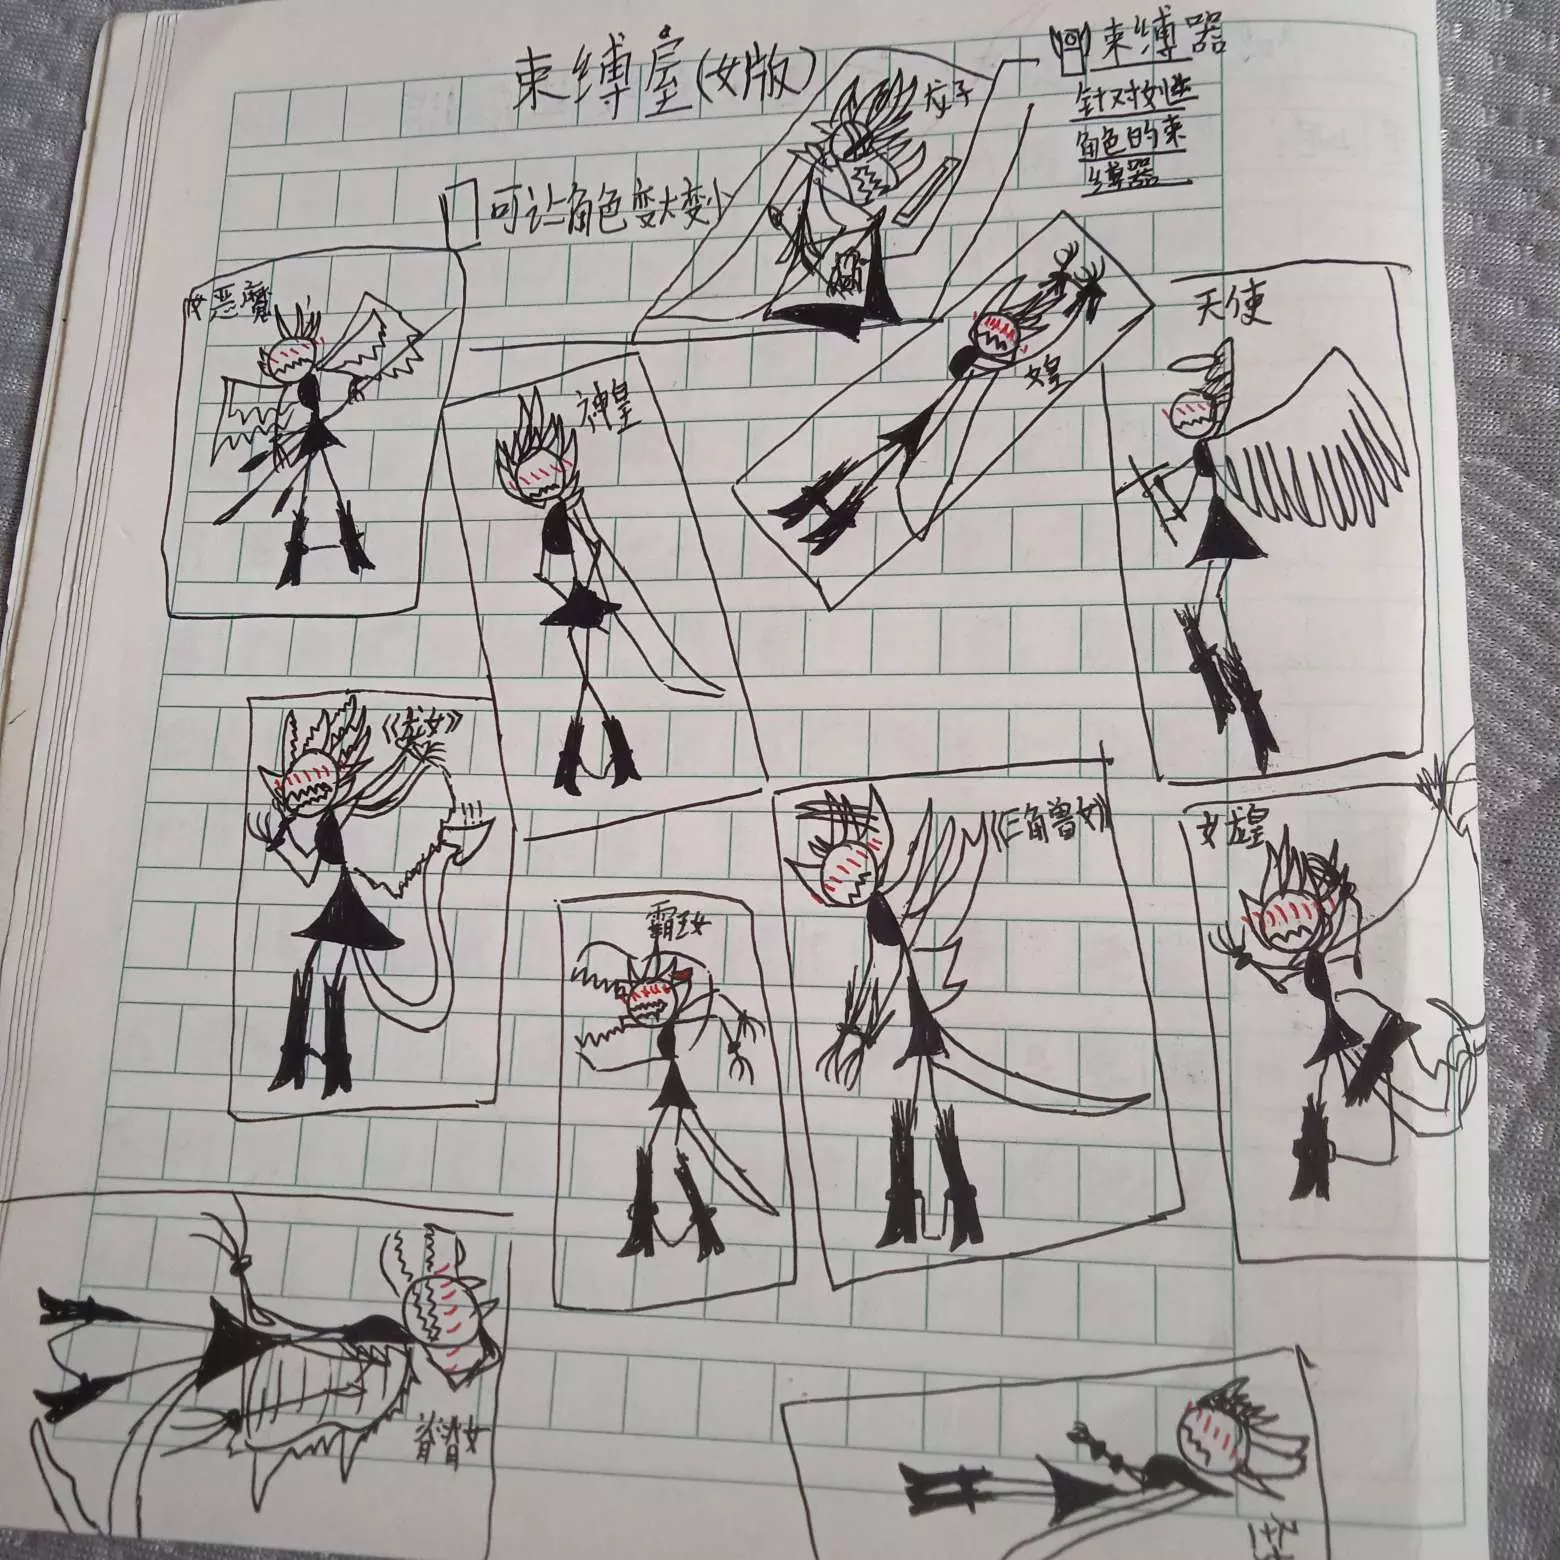 束缚屋(女版)
束缚器
针对女性
角色的束
缚器
可让角色变大变小
龙子
女恶魔
神皇
女皇
天使
《龙女》
霸王女
《三角兽女》
女龙皇
脊背女